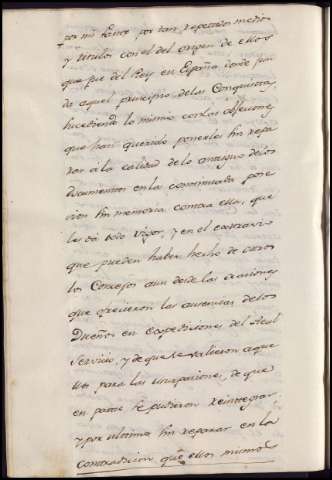 por mi parte por tan repetidos medios
y titulos con el del origen de ellos
que fue del Rey en España donde
da aquel principio de las Conquistas,
sucediendo lo mismo con las
que han querido ponerles sin repa
rar â la calidad de lo antiguo de los
documentos en la continuada pose
cion sin memoria contra ella, que
les dá todo vigor, y en el extravio
que pueden haber hecho de varos
los Consejos aun desde las ocaciones
que ofrecieron las ausencias de los
Dueños en Expediciones del Real
Servicio, y de que se valieron aque
llos para las usurpaciones, de que
en parte se pudieron reintegrar,
y por ultimo sin reparar en la
contradicion que ellos mismos